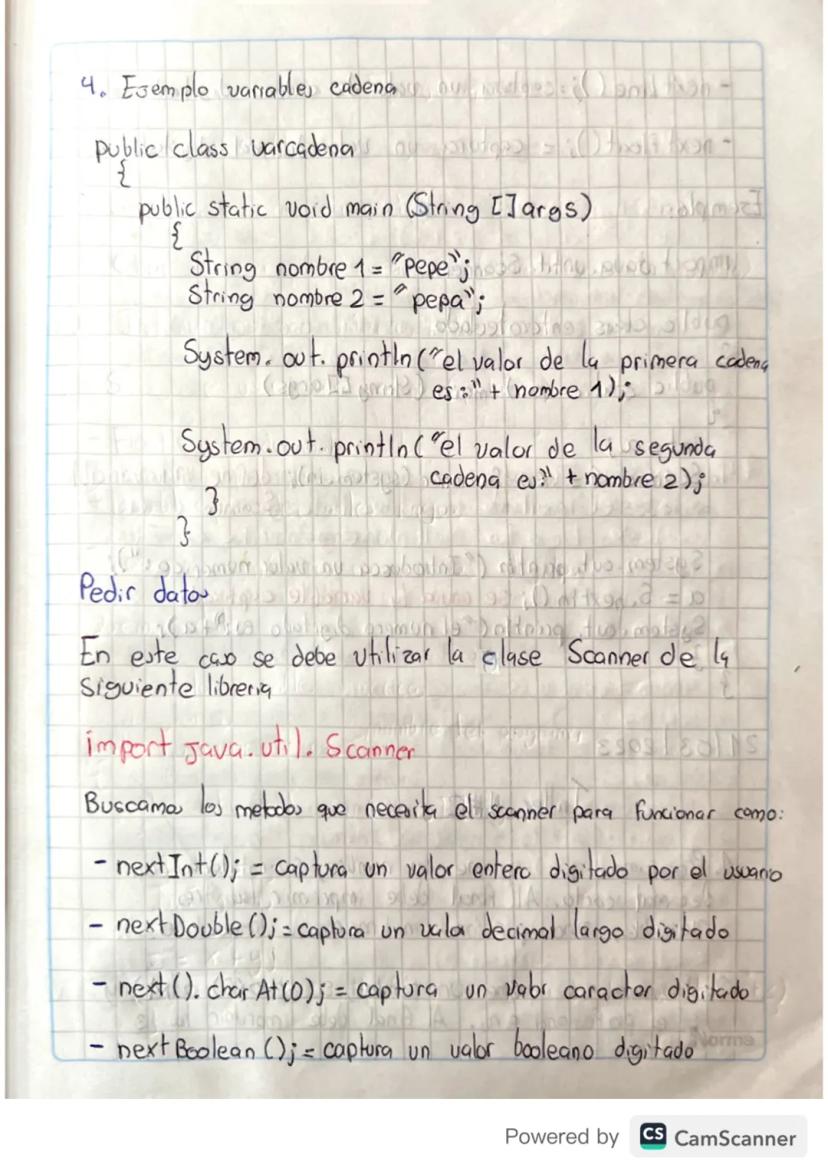 4. Ejemplo variables cadena
public class varcadena
{
public static void main (String []args)
{
String nombre 1 = "pepe";
String nombre 2 = "pepa";
System. out. println("el valor de la primera cadena
es:" + nombre 1);
System.out. println("el valor de la segunda
cadena es:" + nombre 2);
}
}
Pedir datos
En este caso se debe utilizar la clase Scanner de la
siguiente libreria
import java.util. Scanner
Buscamos los metodos que necesita el scanner para funcionar como:
- nextInt(); = captura un valor entero digitado por el usuario
- nextDouble(); = captura un valor decimal largo digitado
- next(). charAt(0); = captura un valor caracter digitado
- nextBoolean(); = captura un valor booleano digitado
Norma
Powered by CS CamScanner